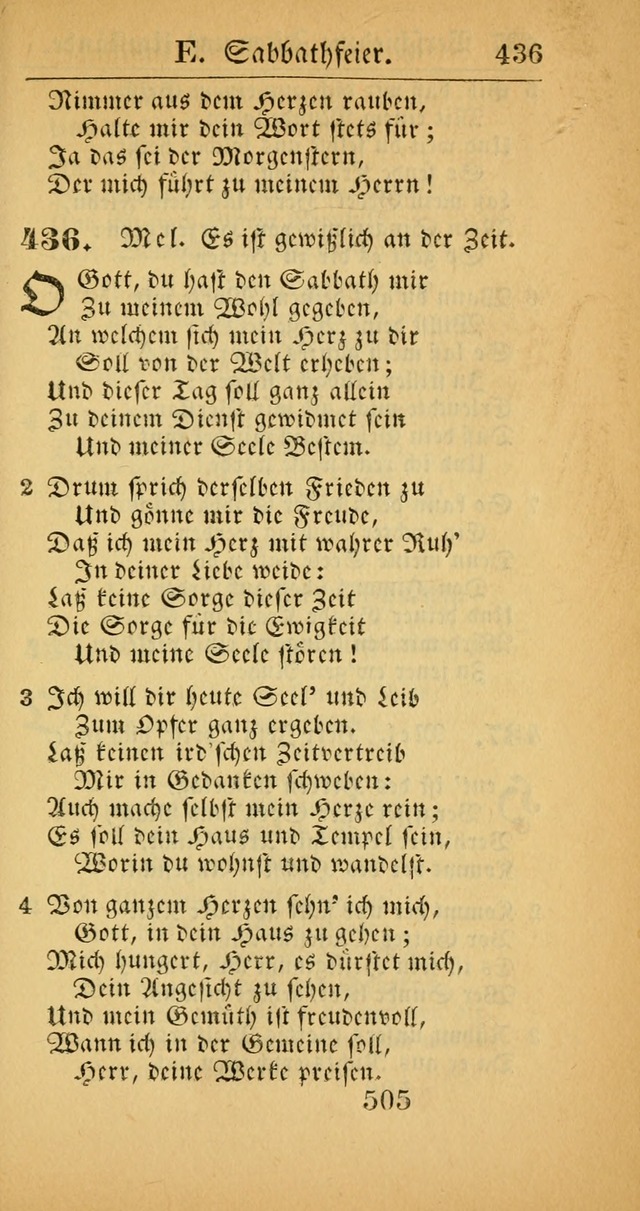 E. Sabbathfeier. 436
Nimmer aus dem Herzen rauben,
Halte mir dein Wort stets für;
Ja das sei der Morgenstern,
Der mich führt zu meinem Herrn!
436. Mel. Es ist gewißlich an der Zeit.
O Gott, du hast den Sabbath mir
Zu meinem Wohl gegeben,
An welchem sich mein Herz zu dir
Soll von der Welt erheben;
Und dieser Tag soll ganz allein
Zu deinem Dienst gewidmet sein
Und meiner Seele Bestem.
2 Drum sprich derselben Frieden zu
Und gönne mir die Freude,
Daß ich mein Herz mit wahrer Ruh’
In deiner Liebe weide:
Laß keine Sorge dieser Zeit
Die Sorge für die Ewigkeit
Und meine Seele stören!
3 Ich will dir heute Seel’ und Leib
Zum Opfer ganz ergeben.
Laß keinen ird’schen Zeitvertreib
Mir in Gedanken schweben:
Auch mache selbst mein Herze rein;
Es soll dein Haus und Tempel sein,
Worin du wohnst und wandelst.
4 Von ganzem Herzen sehn’ ich mich,
Gott, in dein Haus zu gehen;
Mich hungert, Herr, es dürstet mich,
Dein Angesicht zu sehen,
Und mein Gemüth ist freudenvoll,
Wann ich in der Gemeine soll,
Herr, deine Werke preisen.
505